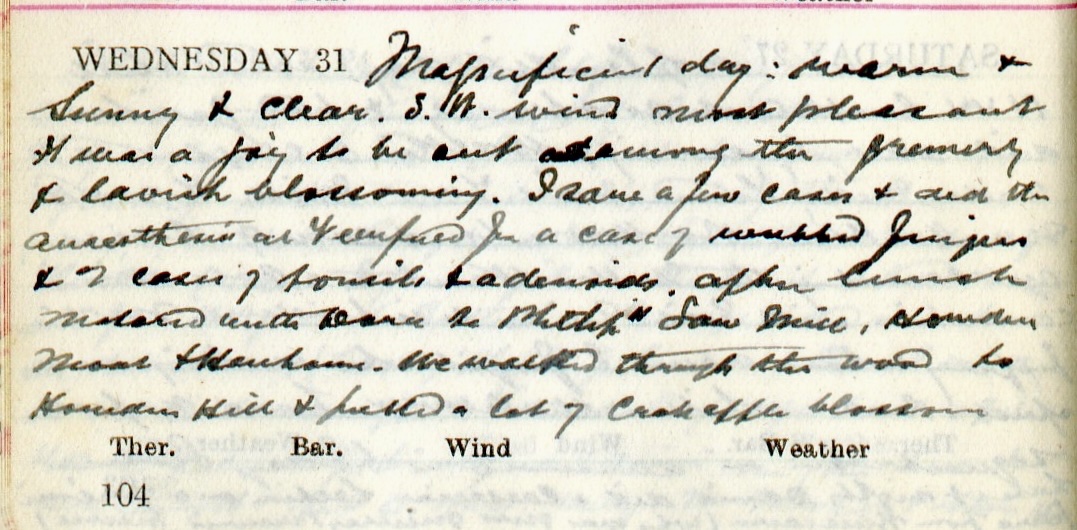 WEDNESDAY 31 Magnificent day: warm &
Sunny & clear. S.W. wind most pleasant
It was a joy to be out among the greenery
& lavish blossoming. I saw a few cases & did the
anaesthetic at for a case of webbed fingers
& 2 cases of tonsils & adenoids. After lunch
motored with to Saw Mill, Howden
Moat & We walked through the wood to
Howden Hill & picked a lot of Crab apple blossom
Ther. Bar. Wind Weather
104